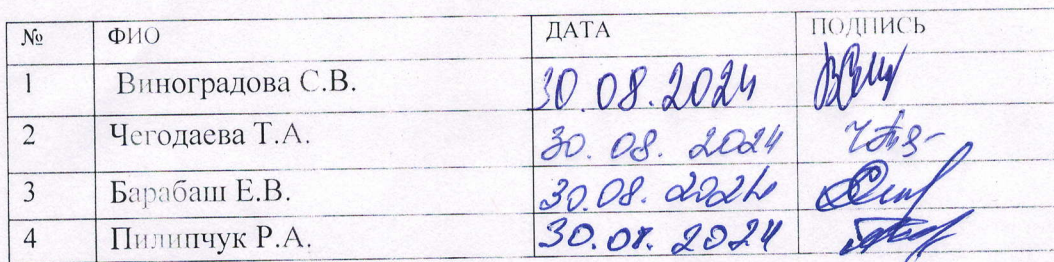 № ФИО ДАТА ПОДПИСЬ
1 Виноградова С.В. 30.08.2024
2 Чегодаева Т.А. 30.08.2024
3 Барабаш Е.В. 30.08.2024
4 Пилипчук Р.А. 30.08.2024